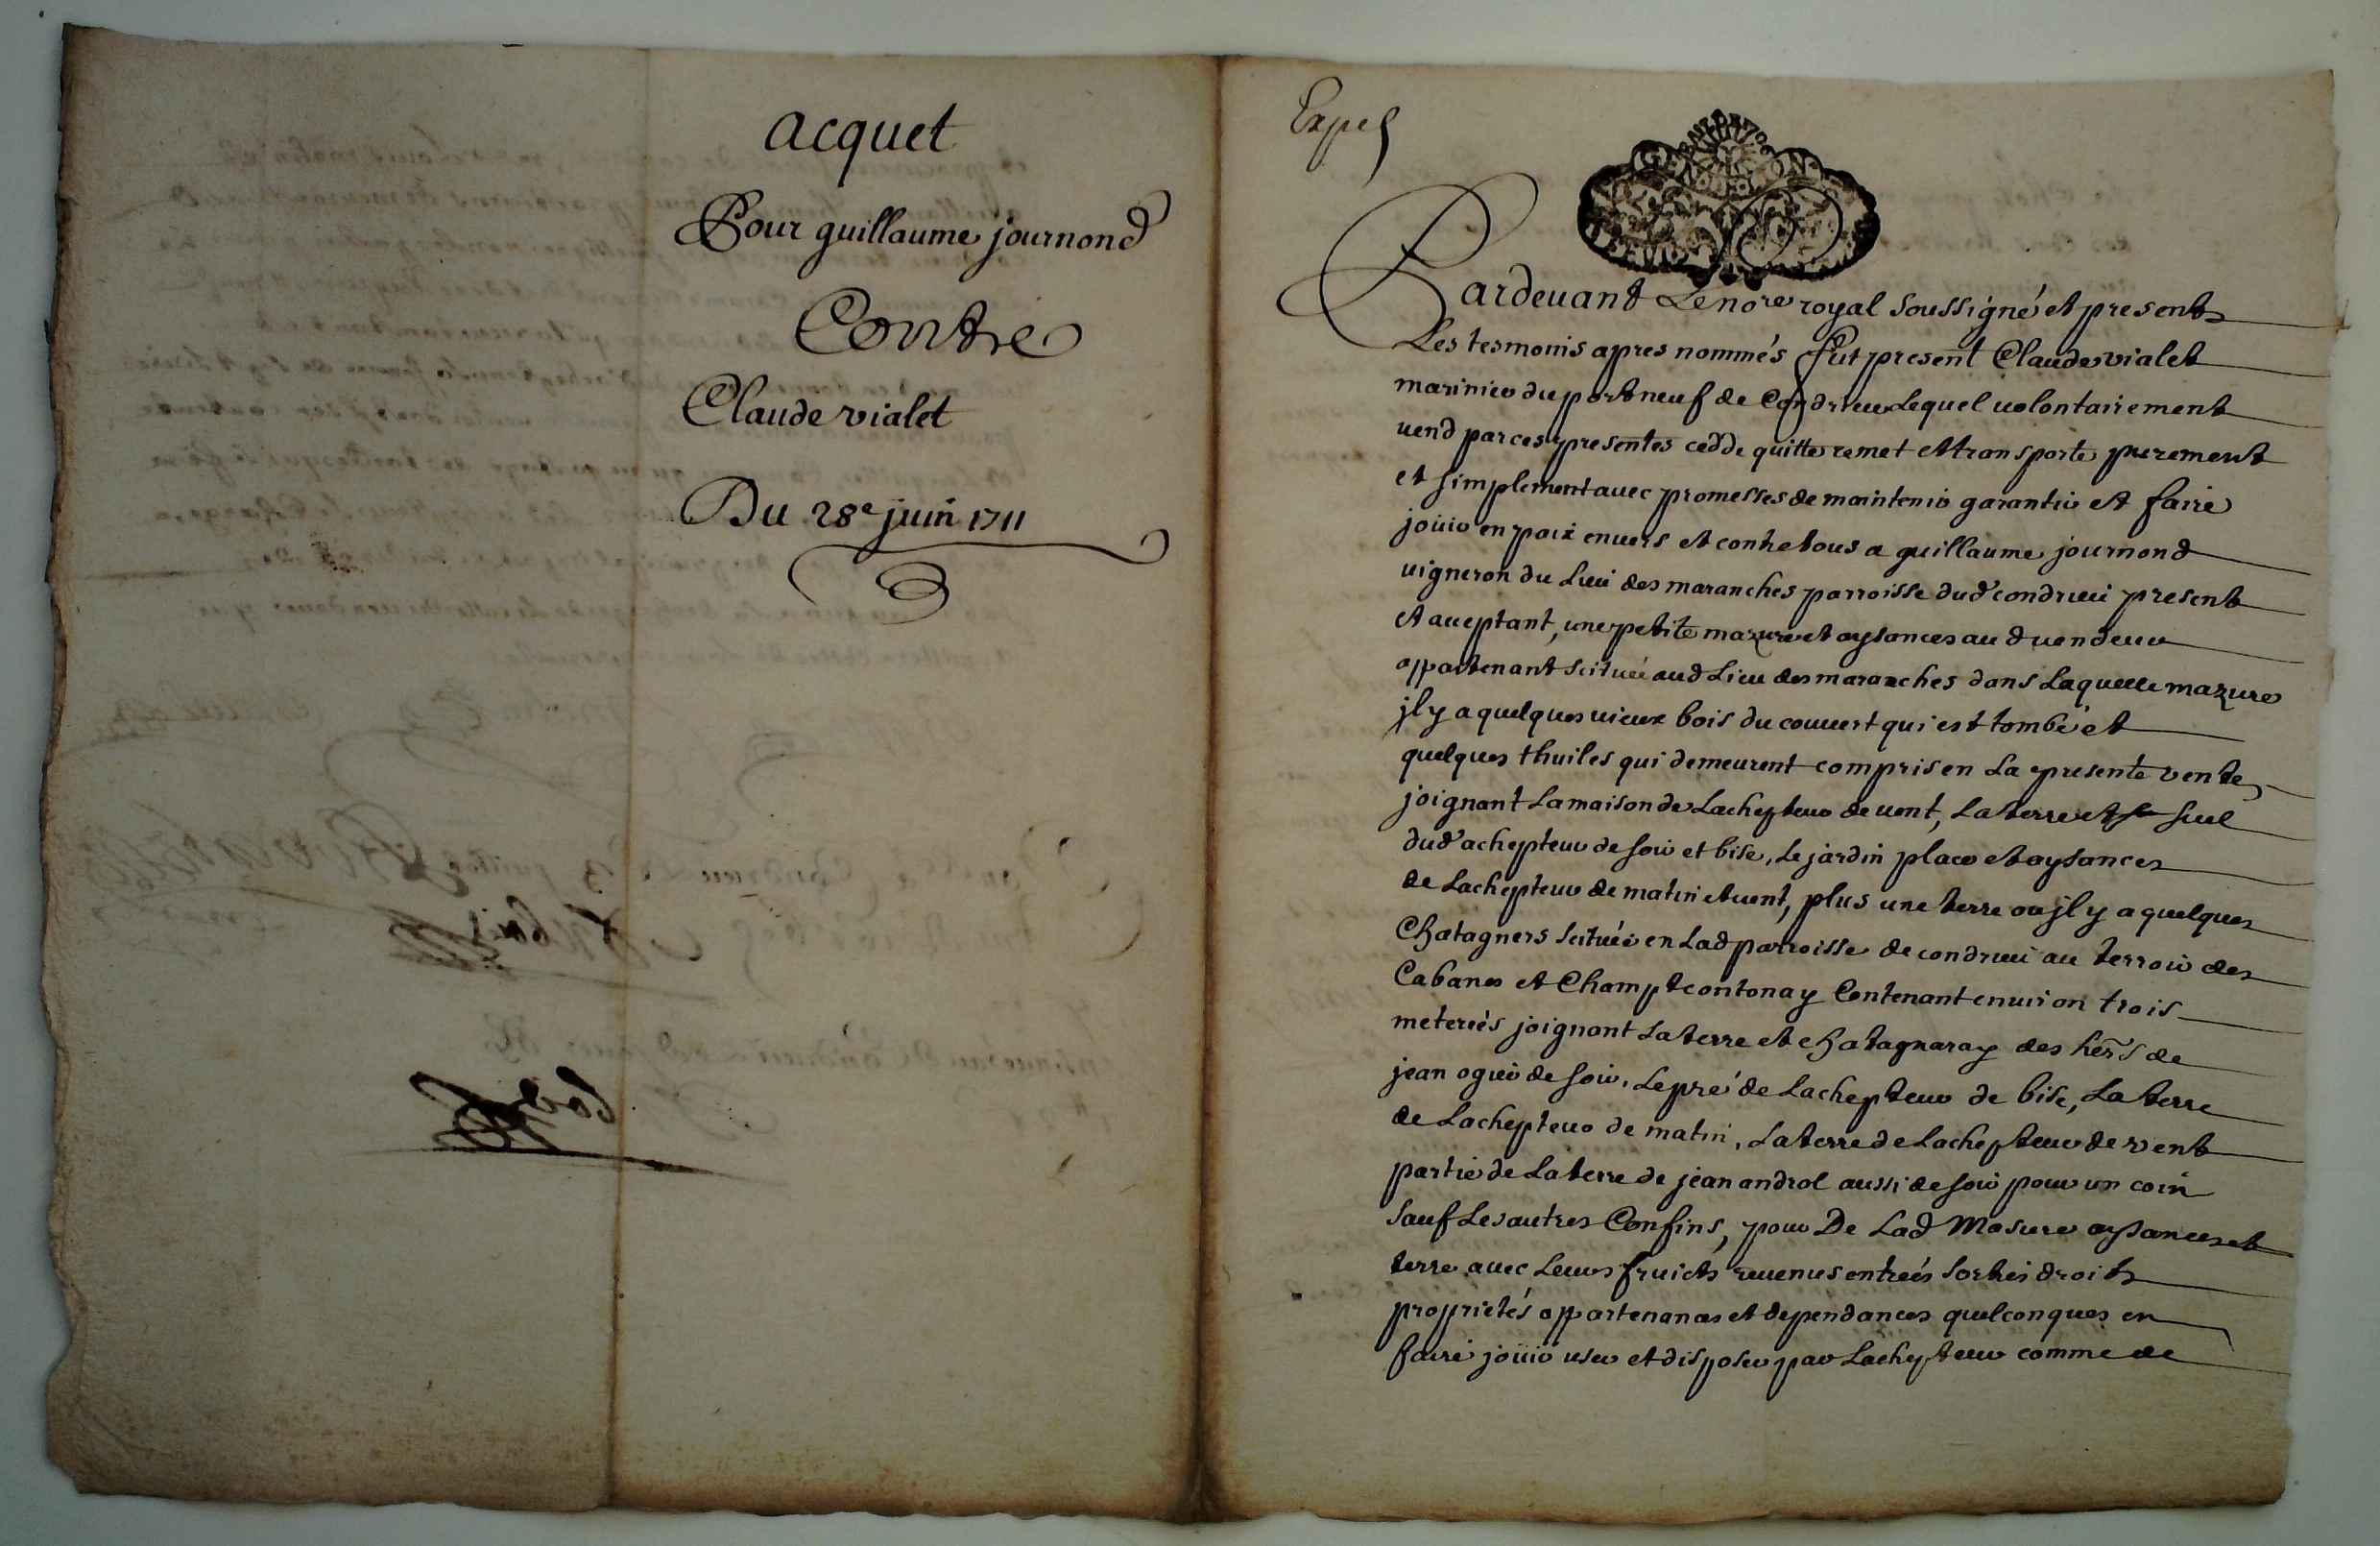 acquet
Pour guillaume journond
Contre
Claude vialet
Du 28e juin 1711
Expe
Pardeuant Le nore royal soussigné et presents
Les tesmoins apres nommés fut present Claude vialet
marinier du port neuf de Condrieu Lequel uolontairement
uend par ces presentes cedde quitte remet et transporte purement
et simplement auec promesses de maintenir garantir et faire
joüir en paix enuers et contre tous a guillaume journond
uigneron du Lieu des maranches parroisse dud condrieu present
et acceptant, une petite mazure et aysances aud uendeur
appartenant scituée aud Lieu des maranches dans Laquelle mazure
jl y a quelques uieux bois du couuert qui est tombé et
quelques thuiles qui demeurent compris en La presente vente,
joignant La maison de Lachepteur de uent, La terre et suel
dud achepteur de soir et bise, Le jardin place et aysances
de Lachepteur de matin et uent, plus une terre ou jl y a quelques
Chatagners scituée en Lad parroisse de condrieu au terroir des
Cabanes et Champtcontonay Contenant enuiron trois
meterées joignant La terre et chatagnaray des hers de
jean oguir de soir, Le pré de Lachepteur de bise, La terre
de Lachepteur de matin, La terre de Lachepteur de vent
partie de La terre de jean androl aussi de soir pour un coin
sauf Les autres Confins, pour De Lad Masure aysances et
terre auec Leurs fruicts reuenus entreés sorties droits
proprietés appartenances et dependances quelconques en
faire joüir user et disposer par Lachepteur comme de